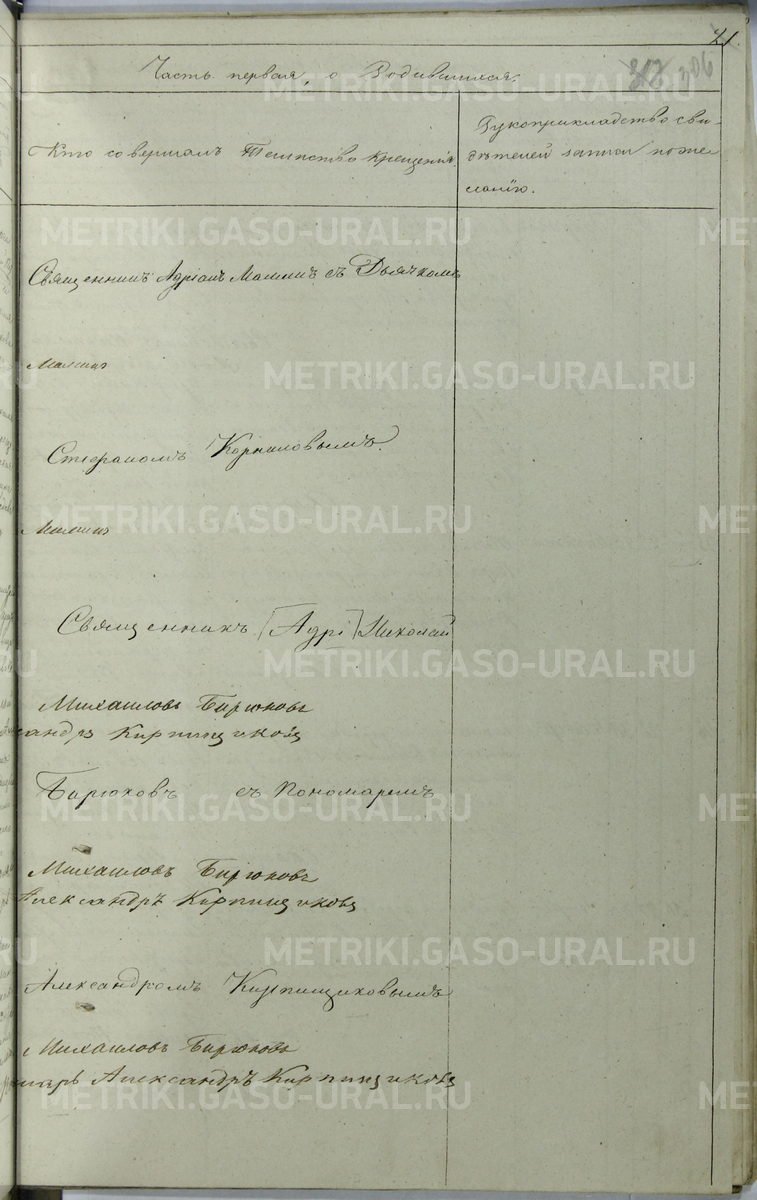 21.
312 306
Часть первая, о Родившихся.
Кто совершалъ Таинство крещенія
Рукоприкладство сви-
дѣтелей записи по же-
ланію.
Священникъ Адріанъ Мамин съ Дьячкомъ
Мамин
Стефаномъ Корниловымъ.
Мамин
Священникъ [Адрі] Николай
Михаиловъ Бирюковъ
сандръ Кирпищиковъ
Бирюковъ съ Пономаремъ
Михаиловъ Бирюковъ
Александръ Кирпищиковъ
Александромъ Кирпищиковымъ
Михаиловъ Бирюковъ
марь Александръ Кирпищиковъ
METRIKI.GASO-URAL.RU